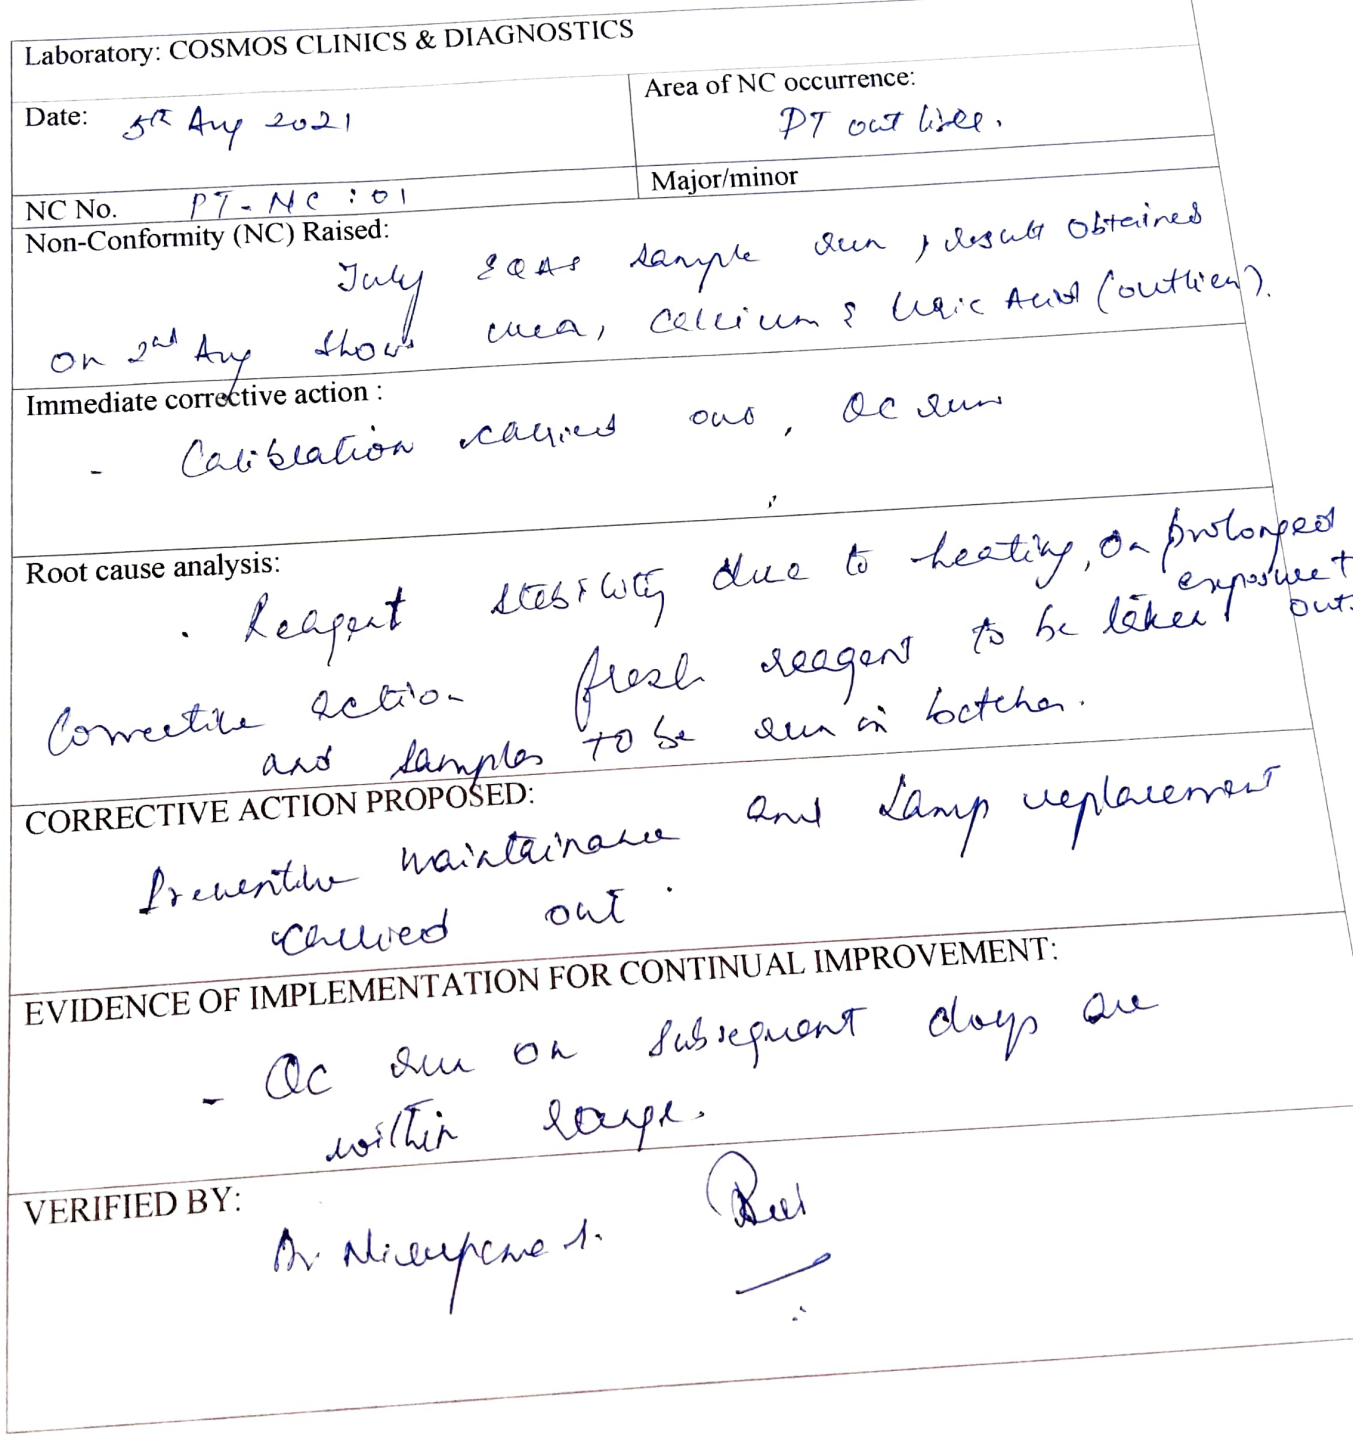 Laboratory: COSMOS CLINICS & DIAGNOSTICS
Date: 5th Aug 2021
Area of NC occurrence:
PT out lier.
NC No. PT-NC:01
Major/minor
Non-Conformity (NC) Raised:
July EQAS sample run, result obtained
on 2nd Aug shows urea, Calcium & Uric Acid (outlier).
Immediate corrective action :
- Calibration carried out, QC run
Root cause analysis:
. Reagent stability due to heating, on prolonged
exposure
Corrective action fresh reagent to be taken out
and samples to be run in batches.
CORRECTIVE ACTION PROPOSED:
Preventive maintainance and Lamp replacement
carried out.
EVIDENCE OF IMPLEMENTATION FOR CONTINUAL IMPROVEMENT:
- QC run on subsequent days are
within range.
VERIFIED BY:
Dr.